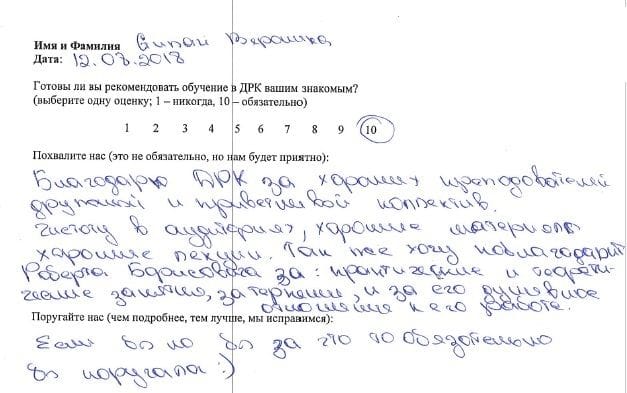 Имя и Фамилия Сипай Верошка
Дата: 12.03.2018
Готовы ли вы рекомендовать обучение в ДРК вашим знакомым?
(выберите одну оценку; 1 – никогда, 10 – обязательно)
1 2 3 4 5 6 7 8 9 10
Похвалите нас (это не обязательно, но нам будет приятно):
Благодарю ДРК за хороших преподователей
и приветливой коллектив.
чистоту в аудитариях, хорошие материалы
харошие лекции. Так же хочу поблагодарить
Роберта Борисовича за: практические и теорети-
ческие занятия, за терпении, и за его душевное
отношение к его работе.
Поругайте нас (чем подробнее, тем лучше, мы исправимся):
Если бы но бы за что то обязательно
бы поругала :)